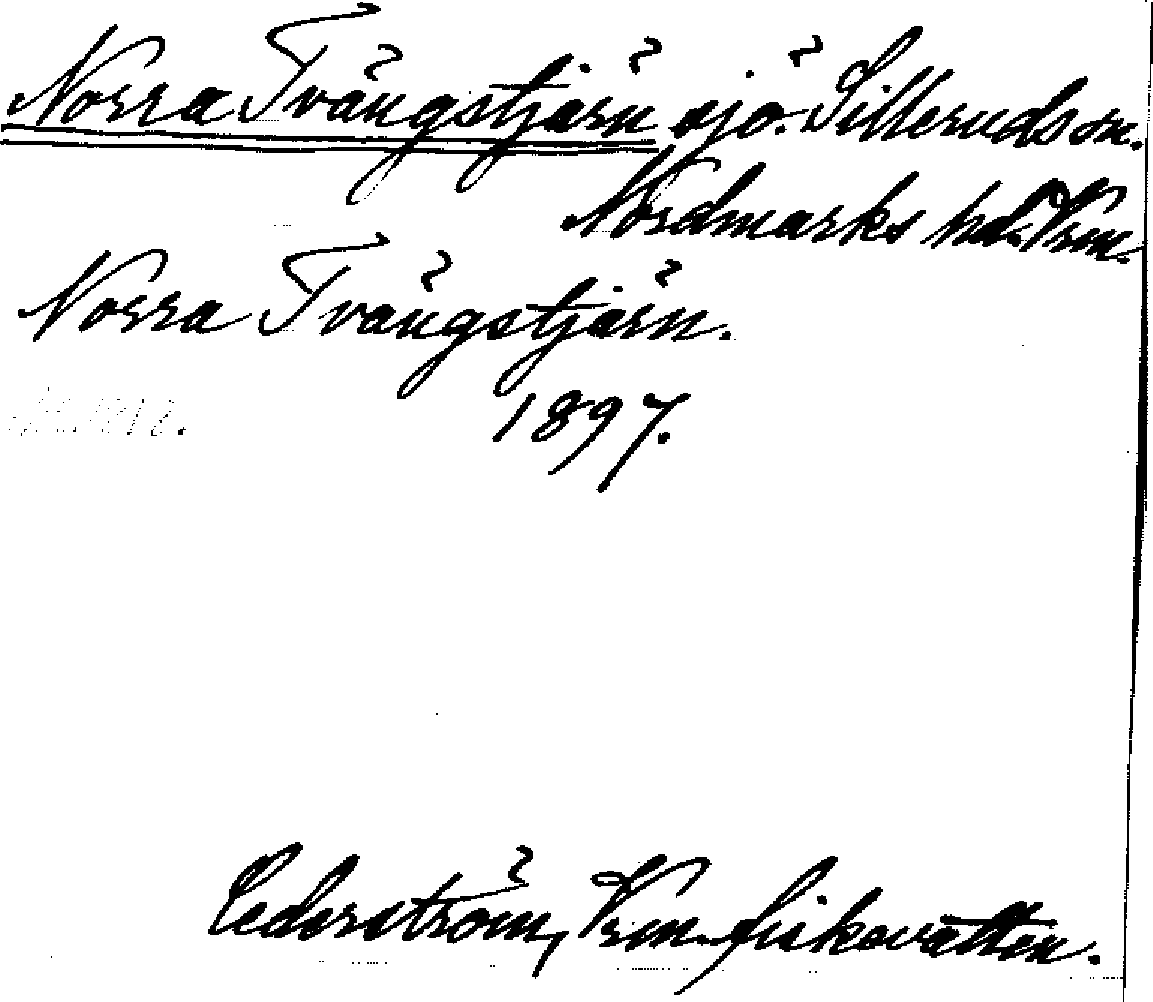 Norra Tvängstjärn sjö. Silleruds sn.
Nordmarks hd. Vrm.
Norra Tvängstjärn.
1897.
Cederström, Vrm. fiskevatten.